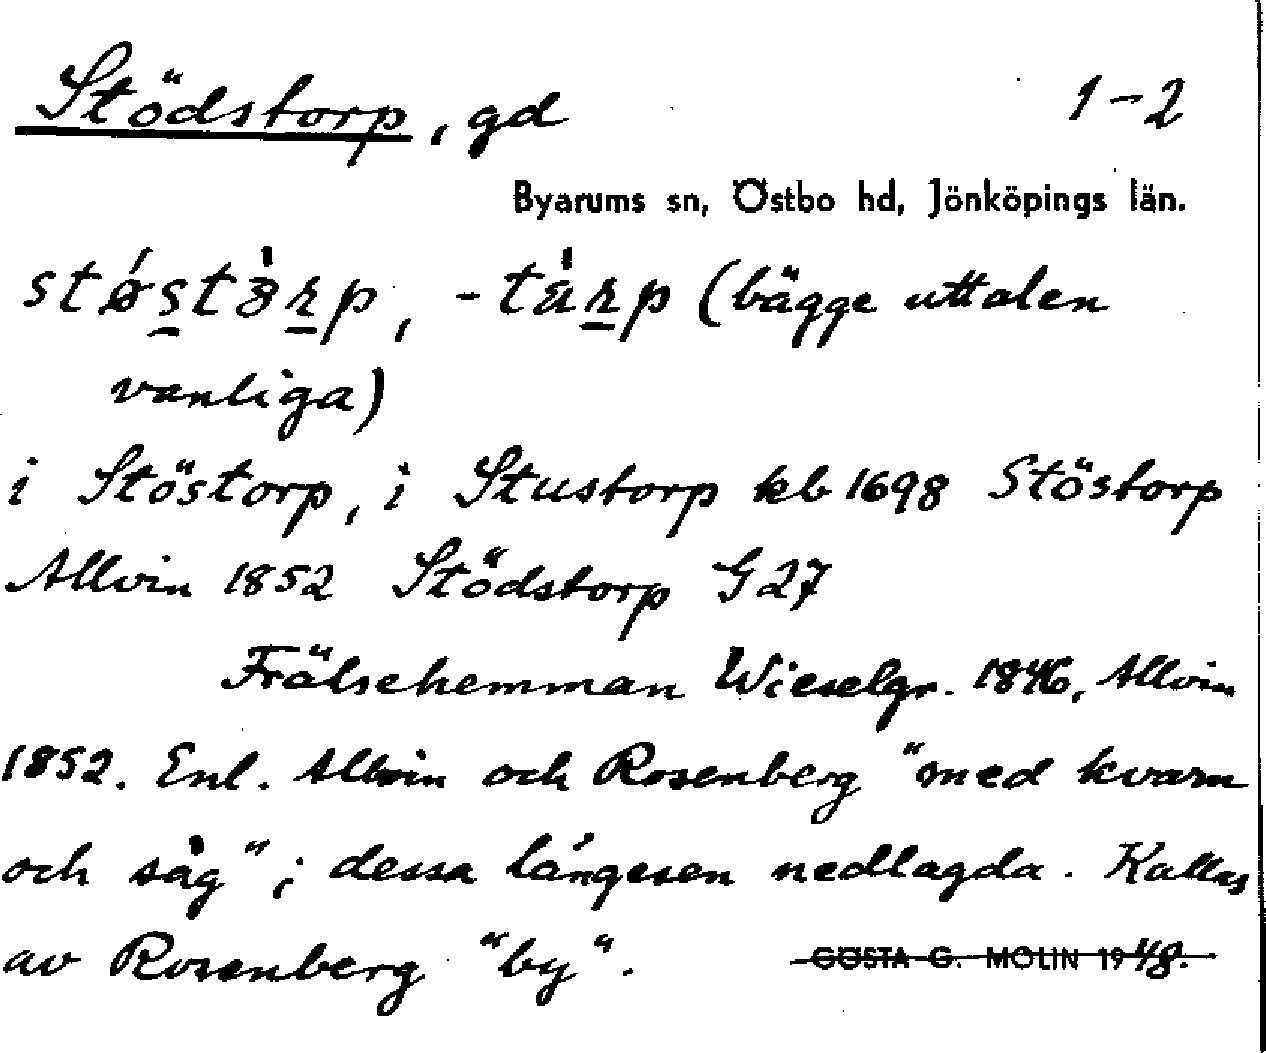 Stödstorp, gd 1-2
Byarums sn, Östbo hd, Jönköpings län.
-tàrp (bägge uttalen
vanliga)
i Stöstorp, i Stustorp kb 1698 Stöstorp
Allvin 1852 Stödstorp G 27
Frälsehemman Wieselgr. 1846, Allvin
1852. Enl. Allvin och Rosenberg "med kvarn
och såg"; dessa längesen nedlagda. Kallas
av Rosenberg "by".
GÖSTA G. MOLIN 1948.